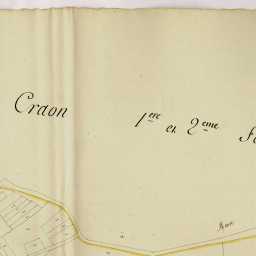 Craon 1ere et 2eme